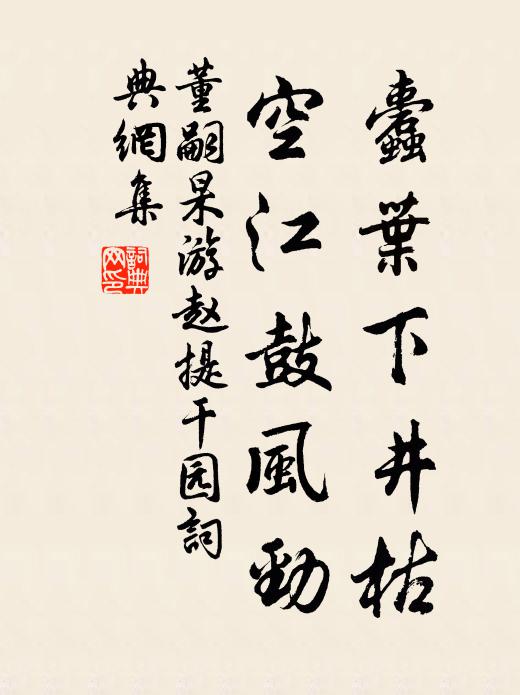 蠹葉下井枯
空江鼓風勁
董嗣杲游赵提干园詞
典網集
詞典網印